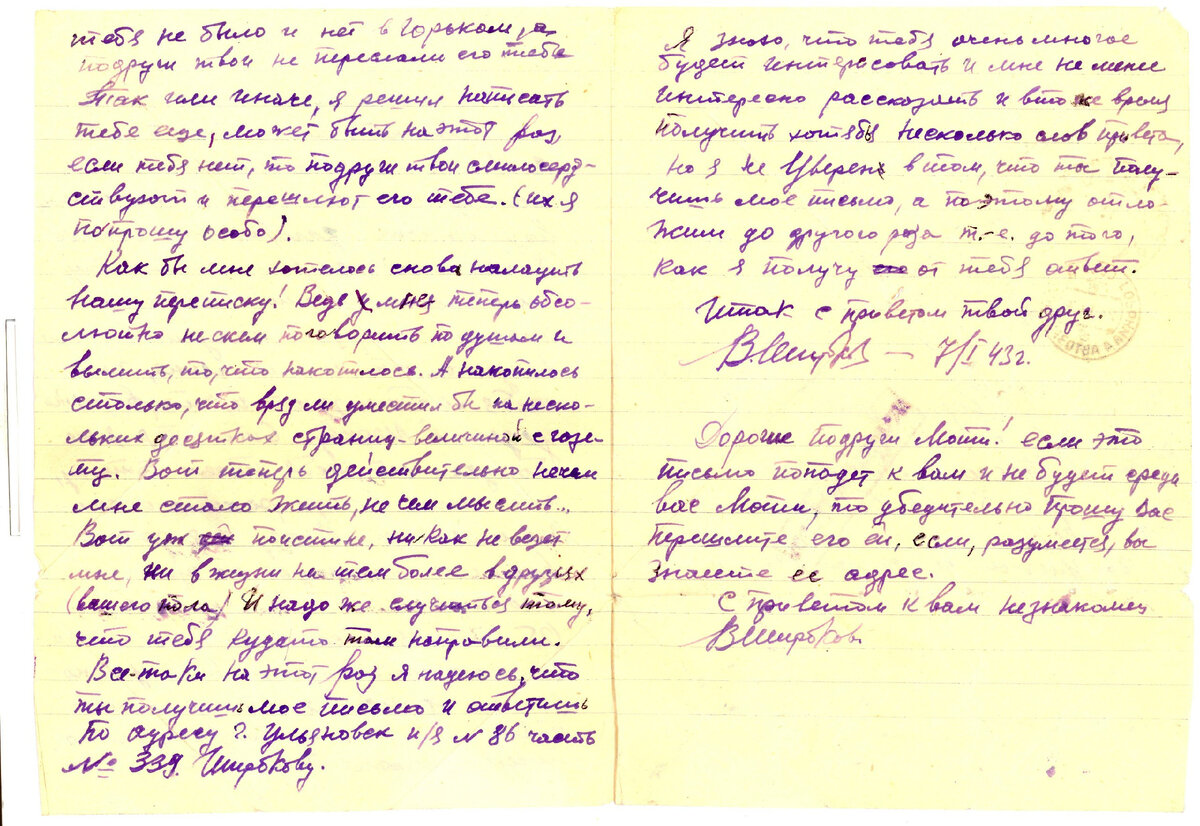 тебя не было и нет в Горьком, а
подруги твои не переслали его тебе
Так или иначе, я решил написать
тебе еще, может быть на этот раз,
если тебя нет, то подруги твои смилосерд-
ствуют и перешлют его тебе. (их я
попрошу особо).
Как бы мне хотелось снова наладить
нашу переписку! Ведь у меня теперь абсо-
лютно не с кем поговорить по душам и
вылить, то, что накопилось. А накопилось
столько, что вряд ли уместил бы на неско-
льких десятках страниц-величиной с газе-
ту. Вот теперь действительно нечем
мне стало жить, не чем мыслить...
Вот уж поистине, ни как не везет
мне, ни в жизни не тем более в друзьях
(вашего пола) И надо же случиться тому,
что тебя куда то там направили.
Все-таки на этот раз я надеюсь, что
ты получишь мое письмо и ответишь
по адресу г. Ульяновск п/я № 86 часть
№ 339. Широкову.
Я знаю, что тебя очень многое
будет интересовать и мне не мене
интересно рассказать и в то же время
получить хотябы несколько слов привета,
но я не уверен в том, что ты полу-
чишь мое письмо, а поэтому отло-
жим до другого раза т.-е. до того,
как я получу от тебя ответ.
Итак с приветом твой друг.
В.Широков — 7/I 43 г.
Дорогие подруги Моти! если это
письмо попадет к вам и не будет среди
вас Моти, то убедительно прошу вас
перешлите его ей, если, разумеется, вы
знаете ее адрес.
С приветом к вам незнакомец
ВШироков